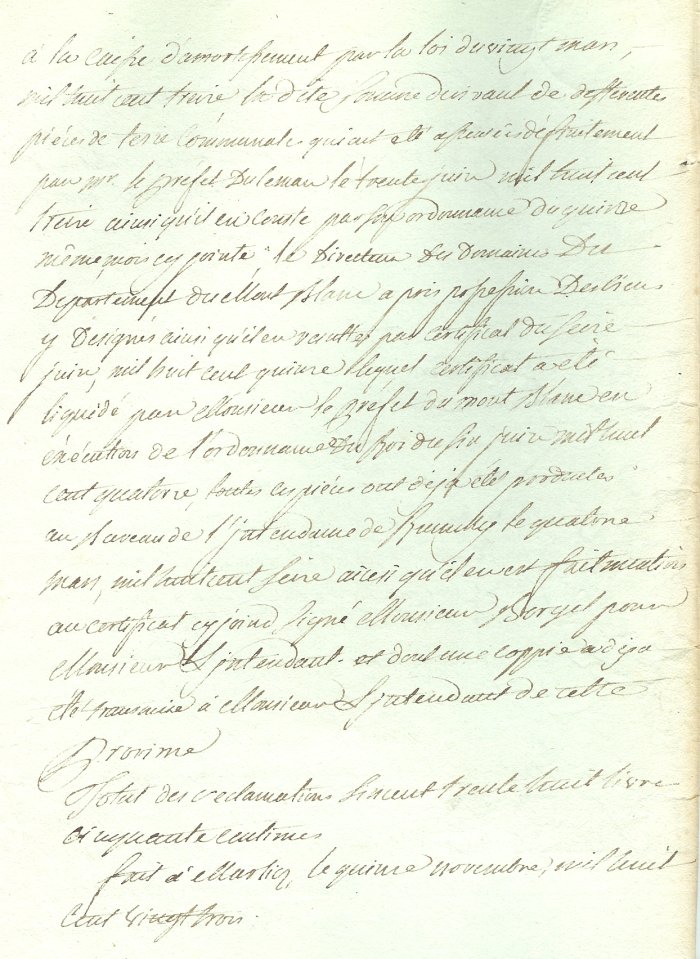 à la caisse d'amortissement par la loi du vingt mars,
mil huit cent treize la dite somme derivant de differentes
pièces de terre communales qui ont été affermées
par mr. le préfet Du leman le trente juin mil huit cent
treize ainsi qu'il en conste par son ordonnance du quinze
même mois cy jointe le Directeur des Domaines Du
Departement du Mont Blanc a pris possession Des biens
y Désignés ainsi qu'il en resulte par certificat du seize
juin, mil huit cent quinze lequel certificat a été
liquidé par Monsieur le préfet du mont Blanc en
éxécution de l'ordonnance Du Roi du six juin mil huit
cent quatorze, toutes ces pièces ont déja étés produites
au Bureau de l'jntendance de Rumilly le quatorze
mars, mil huit cent seize ainsi qu'il en est fait mention
au certificat cy joint signé Monsieur pour
Monsieur L'jntendant et dont une coppie a deja
été transmise à Monsieur L'jntendant de cette
Province
Total des reclamations sixcent trente huit livre
cinquante centimes
fait à le quinze novembre, mil huit
cent vingt trois.